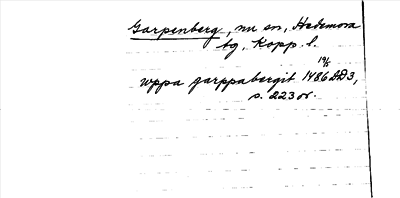 Garpenberg, nu sn, Hedemora
tg, Kopp. l.
19/5
uppa garppabergit 1486 DD3,
s. 223 or.